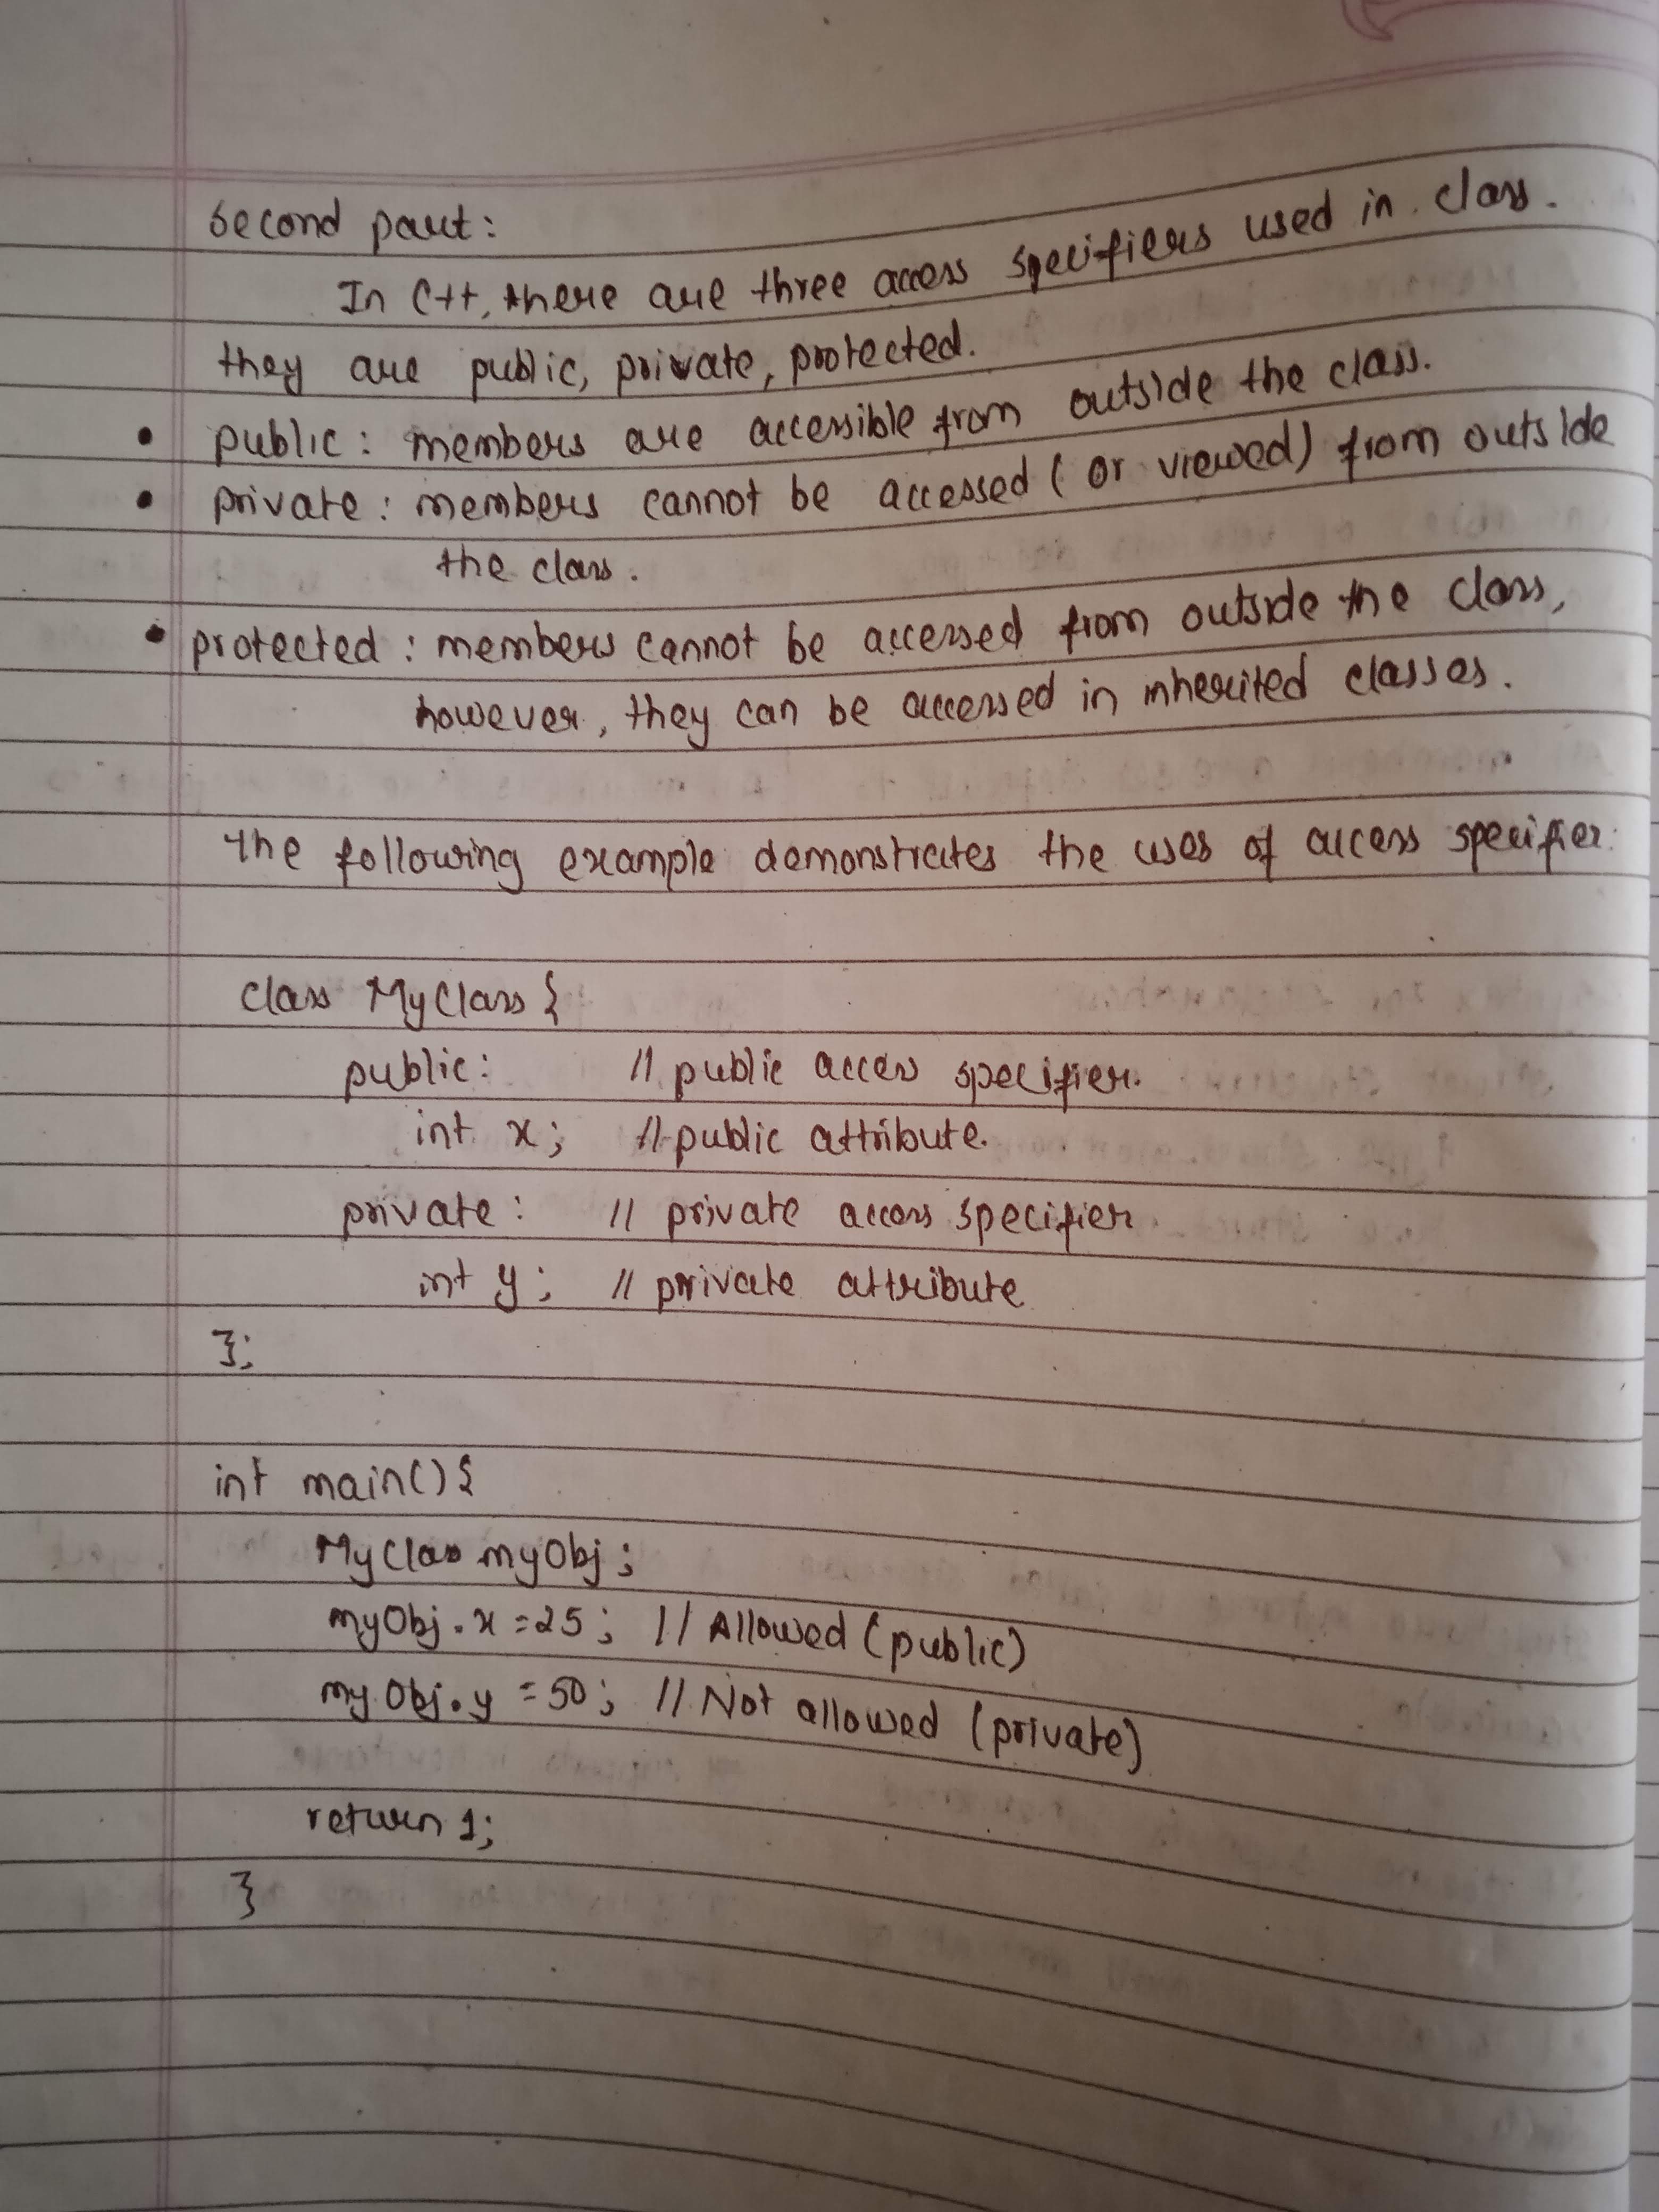 Second part:
In C++, there are three access specifiers used in class.
they are public, private, protected.
• public: members are accessible from outside the class.
• private: members cannot be accessed (or viewed) from outside
the class.
• protected: members cannot be accessed from outside the class,
however, they can be accessed in inherited classes.
The following example demonstrates the uses of access specifier:
class MyClass {
public: // public access specifier.
int x; // public attribute.
private: // private access specifier
int y; // private attribute
};
int main() {
MyClass myObj;
myObj.x = 25; // Allowed (public)
myObj.y = 50; // Not allowed (private)
return 1;
}